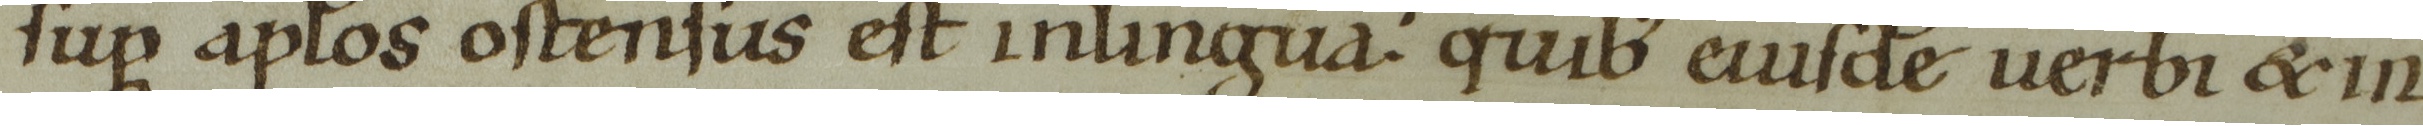 sup aplos ostensus est inlingua. quib eiusde uerbi & in